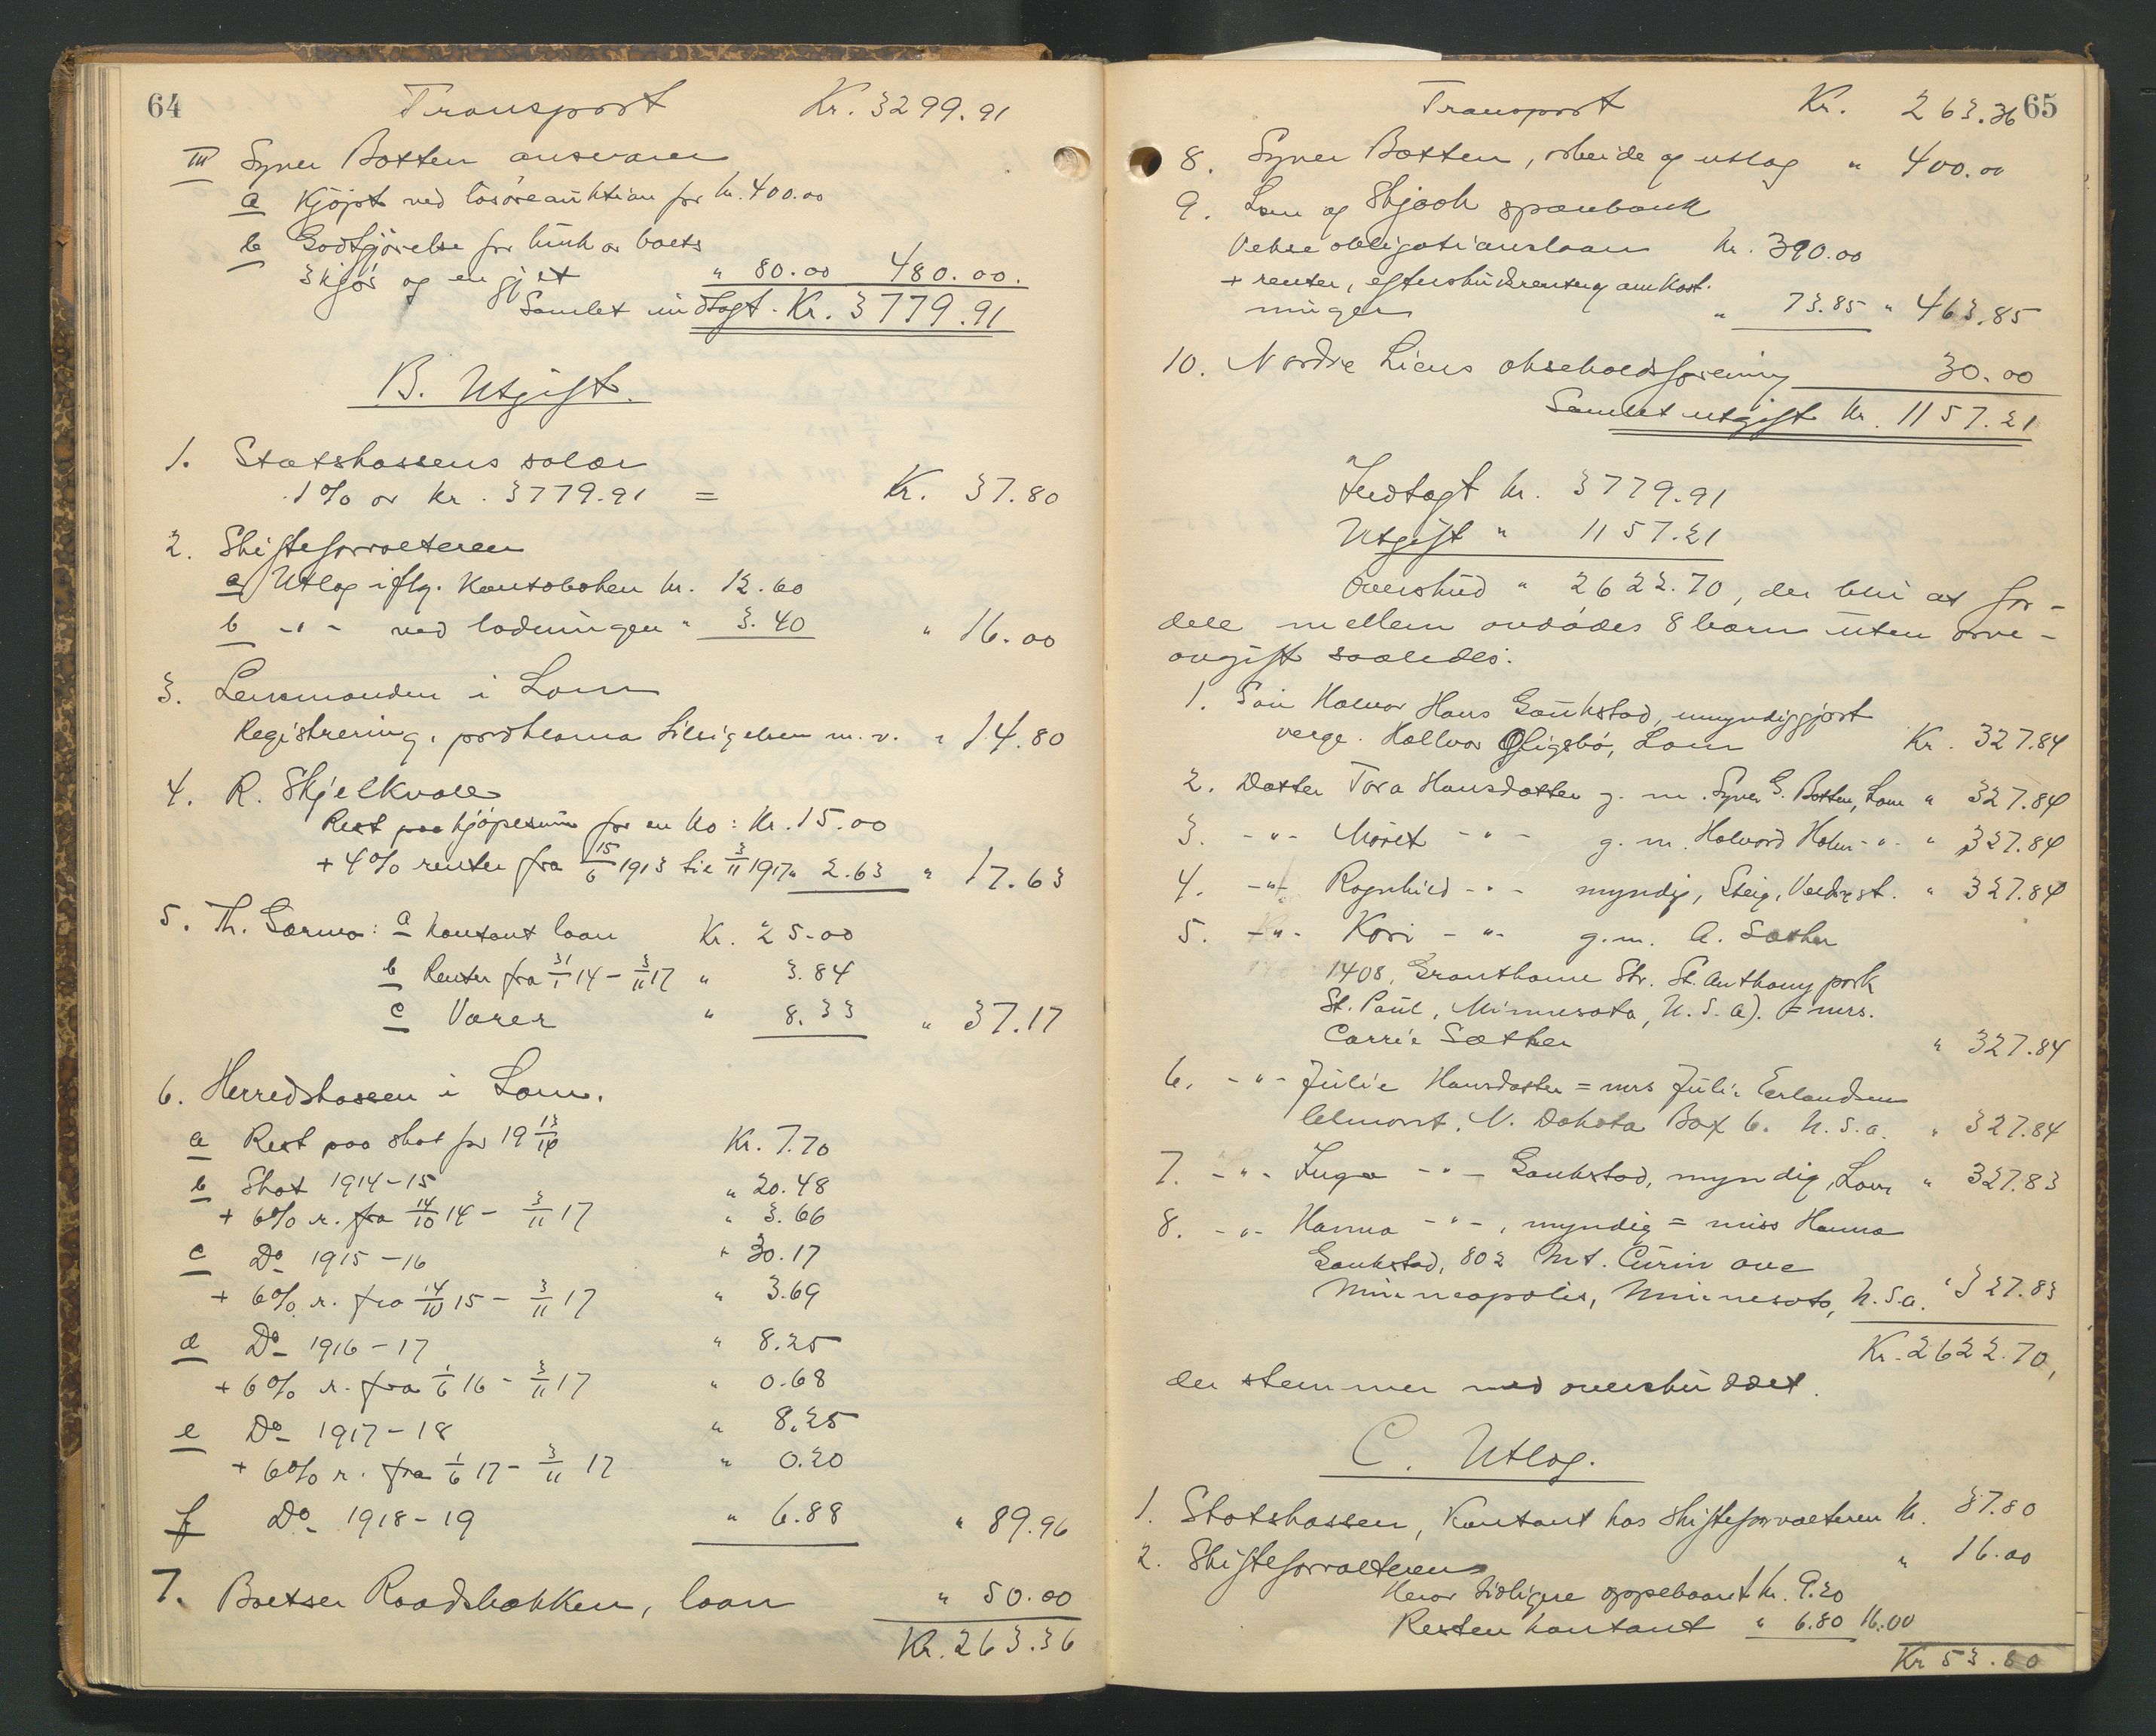 64
Transport Kr. 3299.91
III Syver Botten ansvarer
a Kjöpt ved lösöreauktion for kr. 400.00
b Godtgjörelse for bruk av boets
3 kjör og en gjet " 80.00 480.00.
Samlet indtægt. Kr. 3779.91
B. Utgift.
1. Statskassens salær
1% av kr. 3779.91 = Kr. 37.80
2. Skifteforvalteren
a Utlæg iflg. Kontoboken kr. 12.60
b -"- ved lodningen " 3.40 " 16.00
3. Lensmanden i Lom
Registrering, proklama tilsigelsen m.v. " 14.80
4. R. Skjelkvale
Rest paa kjöpesum for en ko: Kr. 15.00
+ 4% renter fra 15/6 1913 til 3/11 1917 " 2.63 " 17.63
5. Th. Garmo: a kontant laan Kr. 25.00
b Renter fra 31/1 14 - 3/11 17 " 3.84
c Varer " 8.33 " 37.17
6. Herredskassen i Lom.
a Rest paa skat for 19 13/14 Kr. 7.70
b Skat 1914-15 " 20.48
+ 6% r. fra 14/10 14 - 3/11 17 " 3.66
c Do 1915-16 " 30.17
+ 6% r. fra 14/10 15 - 3/11 17 " 3.69
d Do 1916-17 " 8.25
+ 6% r. fra 1/6 16 - 3/11 17 " 0.68
e Do 1917-18 " 8.25
+ 6% r. fra 1/6 17 - 3/11 17 " 0.20
f Do 1918-19 " 6.88 " 89.96
7. Raadsbakken, laan " 50.00
Kr. 263.36
Transport Kr. 263.36 65
8. Syver Botten, arbeide og utlæg " 400.00
9. Lom og Skjaak sparebank
Veksel obligationslaan kr. 390.00
+ renter, efterskudsrenter og omkost-
ninger " 73.85 " 463.85
10. Nordre Liens avholdsforening 30.00
Samlet utgift kr. 1157.21
Indtægt kr. 3779.91
Utgift " 1157.21
Overskud " 2622.70, der blir at for-
dele mellem avdödes 8 barn uten arve-
avgift saaledes:
1. Sön Halvor Hans Gaukstad, umyndiggjort
verge. Hallvor Lom Kr. 327.84
2. Datter Tora Hansdatter g. m. Syver G. Botten, Lom " 327.84
3. -"- Marit -"- g. m. Halvord Holm -"- " 327.84
4. -"- Ragnhild -"- myndig, Steig, " 327.84
5. -"- Kari -"- g.m. A. Sæther
1408, Granthame Str. St. Anthony park
St. Paul, Minnesota, U. S. A). = mrs.
Carrie Sæther " 327.84
6. -"- Julie Hansdatter = mrs Julia Erlandsen
Belmont, N. Dakota Box 6. U. S. a. " 327.84
7. -"- Inga -"- Gaukstad, myndig, Lom " 327.83
8. -"- Hanna -"-, myndig = miss Hanna
Gaukstad, 802 Mt. Curin ave
Minneapolis, Minnesota, U. S. a. " 327.83
Kr. 2622.70,
der stemmer med overskuddet.
C. Utlæg.
1. Statskassen, Kontant hos skifteforvalteren kr. 37.80
2. Skifteforvalteren " 16.00
Herav tidligere oppebaaret kr. 9.20
Resten kontant " 6.80 16.00
Kr 53.80